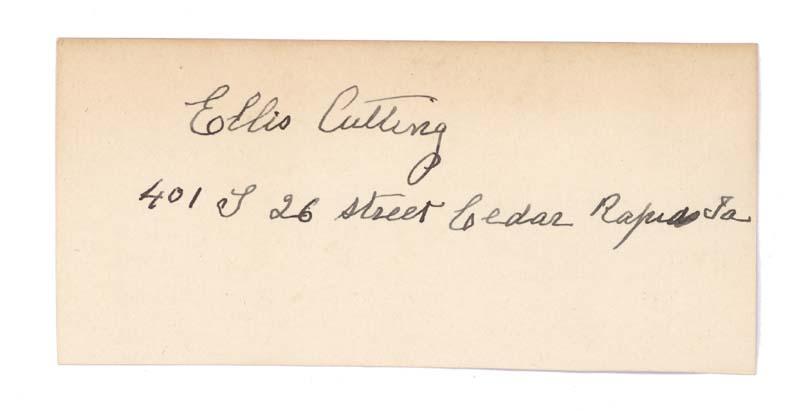 Ellis Cutting
401 S 26 street Cedar Rapids Ia